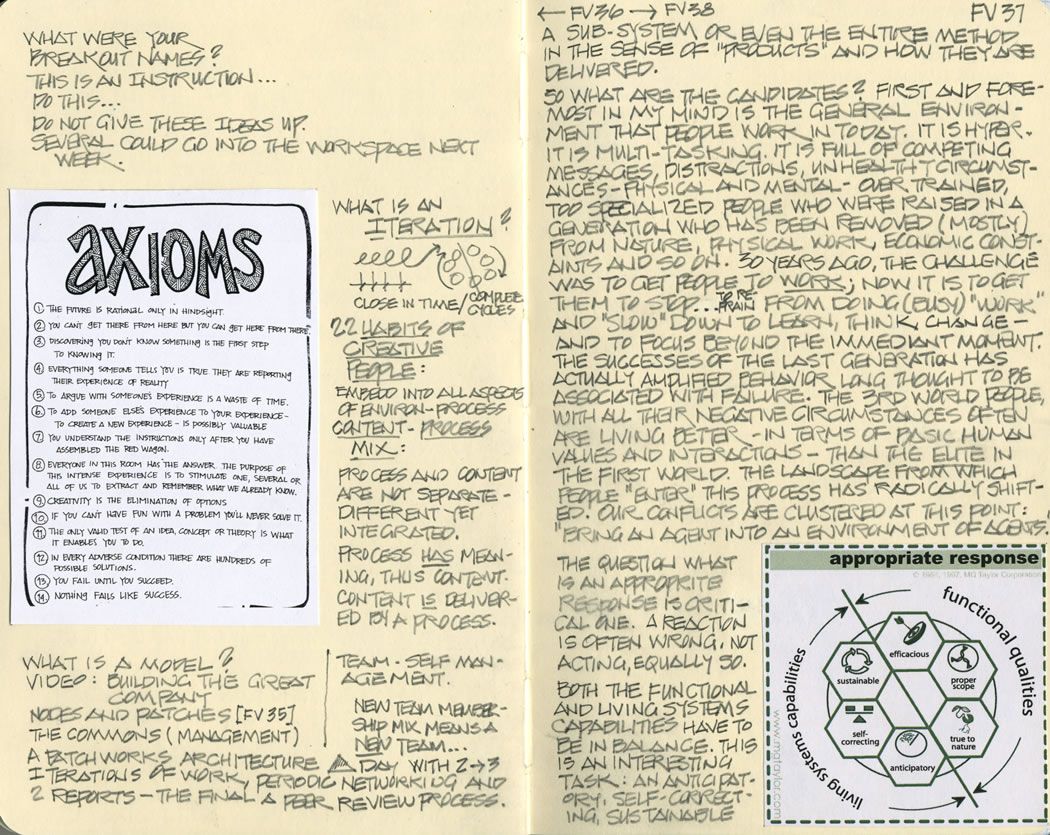 WHAT WERE YOUR
BREAKOUT NAMES?
THIS IS AN INSTRUCTION...
DO THIS...
DO NOT GIVE THESE IDEAS UP.
SEVERAL COULD GO INTO THE WORKSPACE NEXT
WEEK.
AXIOMS
1 THE FUTURE IS RATIONAL ONLY IN HINDSIGHT.
2 YOU CAN'T GET THERE FROM HERE BUT YOU CAN GET HERE FROM THERE.
3 DISCOVERING YOU DON'T KNOW SOMETHING IS THE FIRST STEP
TO KNOWING IT.
4 EVERYTHING SOMEONE TELLS YOU IS TRUE THEY ARE REPORTING
THEIR EXPERIENCE OF REALITY
5 TO ARGUE WITH SOMEONE'S EXPERIENCE IS A WASTE OF TIME.
6 TO ADD SOMEONE ELSE'S EXPERIENCE TO YOUR EXPERIENCE-
TO CREATE A NEW EXPERIENCE - IS POSSIBLY VALUABLE
7 YOU UNDERSTAND THE INSTRUCTIONS ONLY AFTER YOU HAVE
ASSEMBLED THE RED WAGON.
8 EVERYONE IN THIS ROOM HAS THE ANSWER. THE PURPOSE OF
THIS INTENSE EXPERIENCE IS TO STIMULATE ONE, SEVERAL OR
ALL OF US TO EXTRACT AND REMEMBER WHAT WE ALREADY KNOW.
9 CREATIVITY IS THE ELIMINATION OF OPTIONS.
10 IF YOU CAN'T HAVE FUN WITH A PROBLEM YOU'LL NEVER SOLVE IT.
11 THE ONLY VALID TEST OF AN IDEA, CONCEPT OR THEORY IS WHAT
IT ENABLES YOU TO DO.
12 IN EVERY ADVERSE CONDITION THERE ARE HUNDREDS OF
POSSIBLE SOLUTIONS.
13 YOU FAIL UNTIL YOU SUCCEED.
14 NOTHING FAILS LIKE SUCCESS.
WHAT IS AN
ITERATION?
CLOSE IN TIME/ COMPLETE
CYCLES
22 HABITS OF
CREATIVE
PEOPLE:
EMBEDD INTO ALL ASPECTS
OF ENVIRON-PROCESS
CONTENT-PROCESS
MIX:
PROCESS AND CONTENT
ARE NOT SEPARATE-
DIFFERENT YET
INTEGRATED.
PROCESS HAS MEAN-
ING, THUS CONTENT.
CONTENT IS DELIVER-
ED BY A PROCESS.
WHAT IS A MODEL?
VIDEO: BUILDING THE GREAT
COMPANY
NODES AND PATCHES [FV35]
THE COMMONS (MANAGEMENT)
A PATCH WORKS ARCHITECTURE DAY WITH 2→3
ITERATIONS OF WORK, PERIODIC NETWORKING AND
2 REPORTS - THE FINAL A PEER REVIEW PROCESS.
TEAM - SELF MAN-
AGEMENT.
NEW TEAM MEMBER-
SHIP MIX MEANS A
NEW TEAM...
← FV36 → FV38
FV37
A SUB-SYSTEM OR EVEN THE ENTIRE METHOD
IN THE SENSE OF "PRODUCTS" AND HOW THEY ARE
DELIVERED.
SO WHAT ARE THE CANDIDATES? FIRST AND FORE-
MOST IN MY MIND IS THE GENERAL ENVIRON-
MENT THAT PEOPLE WORK IN TODAY. IT IS HYPER.
IT IS MULTI-TASKING. IT IS FULL OF COMPETING
MESSAGES, DISTRACTIONS, UNHEALTHY CIRCUMST-
ANCES - PHYSICAL AND MENTAL - OVER TRAINED,
TOO SPECIALIZED PEOPLE WHO WERE RAISED IN A
GENERATION WHO HAS BEEN REMOVED (MOSTLY)
FROM NATURE, PHYSICAL WORK, ECONOMIC CONST-
AINTS AND SO ON. 30 YEARS AGO, THE CHALLENGE
WAS TO GET PEOPLE TO WORK; NOW IT IS TO GET
THEM TO STOP... TO RE-FRAIN FROM DOING (BUSY) "WORK"
AND "SLOW" DOWN TO LEARN, THINK, CHANGE -
AND TO FOCUS BEYOND THE IMMEDIANT MOMENT.
THE SUCCESSES OF THE LAST GENERATION HAS
ACTUALLY AMPLIFIED BEHAVIOR LONG THOUGHT TO BE
ASSOCIATED WITH FAILURE. THE 3RD WORLD PEOPLE,
WITH ALL THEIR NEGATIVE CIRCUMSTANCES OFTEN
ARE LIVING BETTER - IN TERMS OF BASIC HUMAN
VALUES AND INTERACTIONS - THAN THE ELITE IN
THE FIRST WORLD. THE LANDSCAPE FROM WHICH
PEOPLE "ENTER" THIS PROCESS HAS RADICALLY SHIFT-
ED. OUR CONFLICTS ARE CLUSTERED AT THIS POINT:
"BRING AN AGENT INTO AN ENVIRONMENT OF AGENTS.
THE QUESTION WHAT
IS AN APPROPRITE
RESPONSE IS CRITI-
CAL ONE. A REACTION
IS OFTEN WRONG, NOT
ACTING, EQUALLY SO.
BOTH THE FUNCTIONAL
AND LIVING SYSTEMS
CAPABILITIES HAVE TO
BE IN BALANCE. THIS
IS AN INTERESTING
TASK: AN ANTICIPAT-
ORY, SELF-CORRECT-
ING, SUSTAINABLE
appropriate response
MG Taylor Corporation
functional qualities
living systems capabilities
efficacious
sustainable
proper
scope
self-
correcting
true to
nature
anticipatory
www.mgtaylor.com